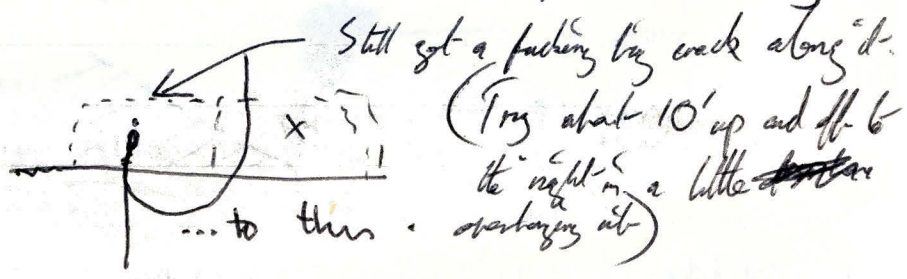 Still got a fucking big crack along it.
(Try about 10' up and off to
the right in a little
overhanging
... to this.
x